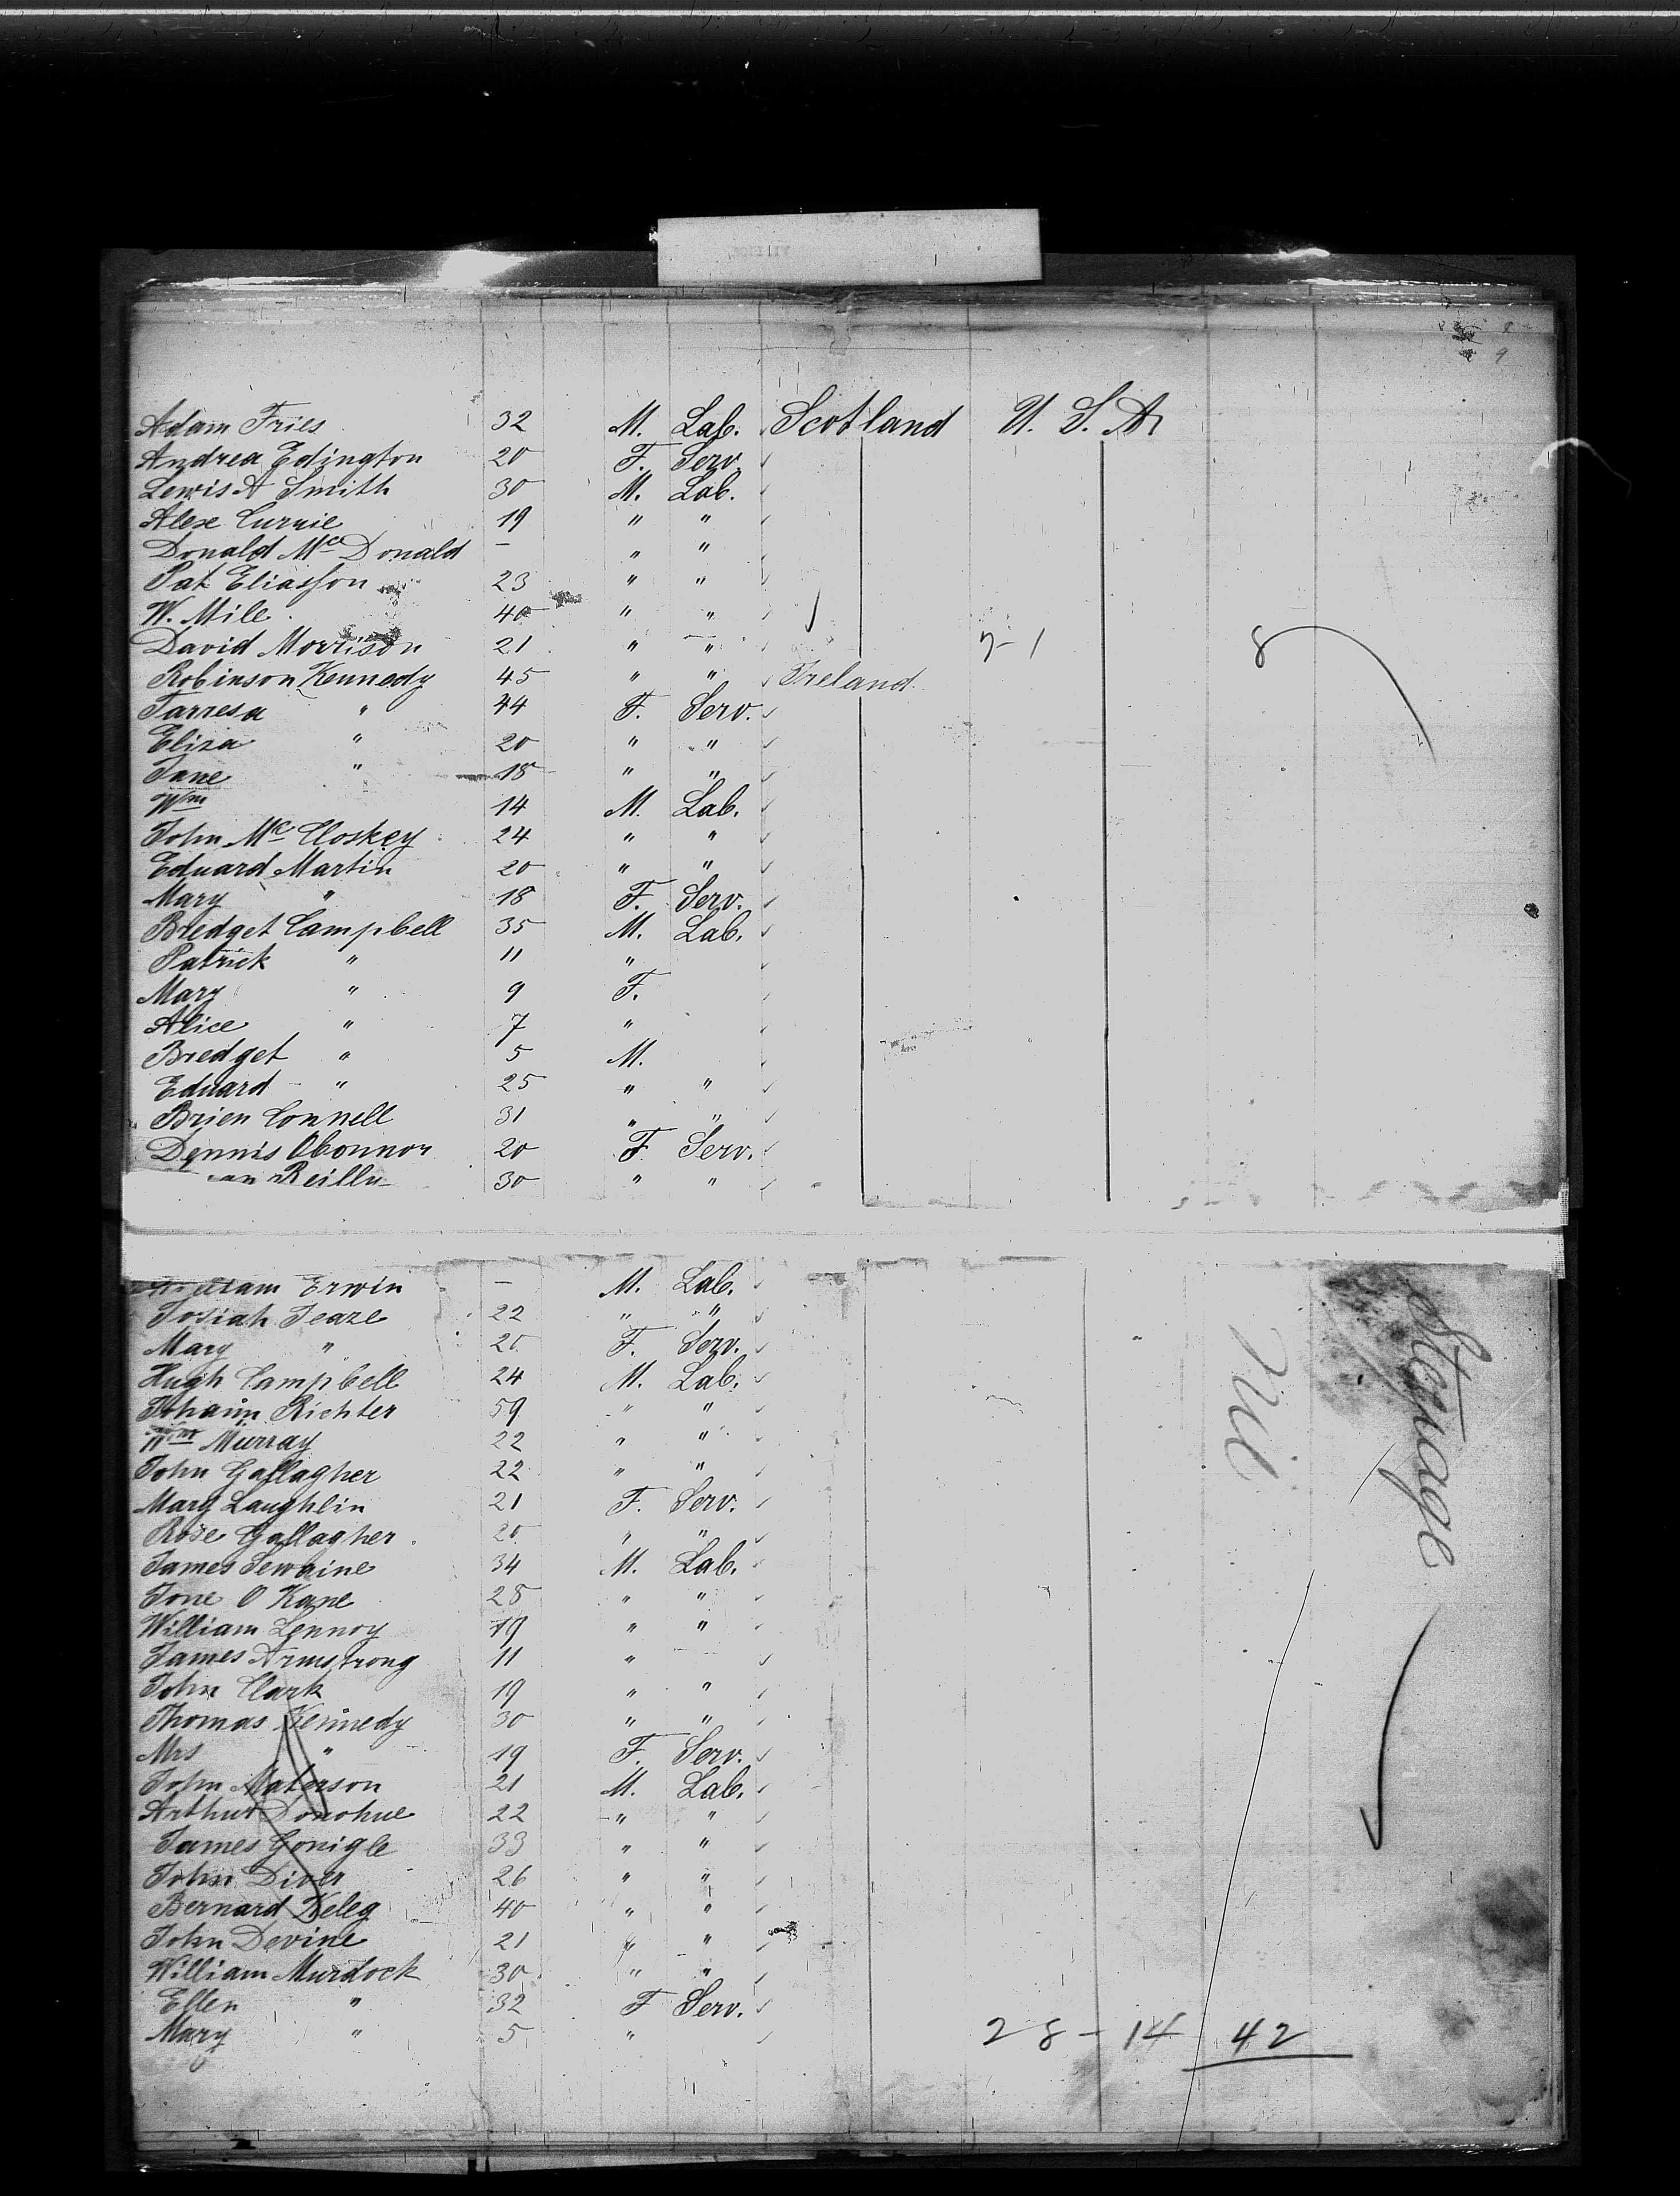 Adam Fries 32 M. Lab. Scotland U. S. A
Andrea Edington 20 F. Serv.
Lewis A Smith 30 M. Lab.
Alex Currie 19 " "
Donald Mc Donald — " "
Pat Eliasson 23 " "
W. Mile 40 " "
David Morrison 21 " " 7-1 8
Robinson Kennedy 45 " " Ireland
Tarresa " 44 F. Serv.
Eliza " 20 " "
Jane " 18 " "
Wm 14 M. Lab.
John Mc Closkey 24 " "
Eduard Martin 20 " "
Mary " 18 F. Serv.
Bredget Campbell 35 M. Lab.
Patrick " 11 "
Mary " 9 F.
Alice " 7 "
Bredget " 5 M.
Eduard " 25 " "
Brien Connell 31 " "
Dennis Oconnor 20 F Serv.
Reilly 30 " "
Erwin — M. Lab.
Josiah Teaze 22 " "
Mary " 20 F. Serv.
Hugh Campbell 24 M. Lab.
Johann Richter 59 " "
Wm Murray 22 " "
John Gallagher 22 " "
Mary Laughlin 21 F. Serv.
Rose Gallagher 20 " "
James Sewaine 34 M. Lab.
Jone O Kane 28 " "
William Lennoy 19 " "
James Armstrong 11 "
John Clark 19 " "
Thomas Kennedy 30 " "
Mrs " 19 F. Serv.
John Materson 21 M. Lab.
Arthur Donohue 22 " "
James Gonigle 33 " "
John Diver 26 " "
Bernard Keleg 40 " "
John Devine 21 " "
William Murdock 30 " "
Ellen " 32 F Serv.
Mary " 5 " 28 - 14 42
Nil
Steerage